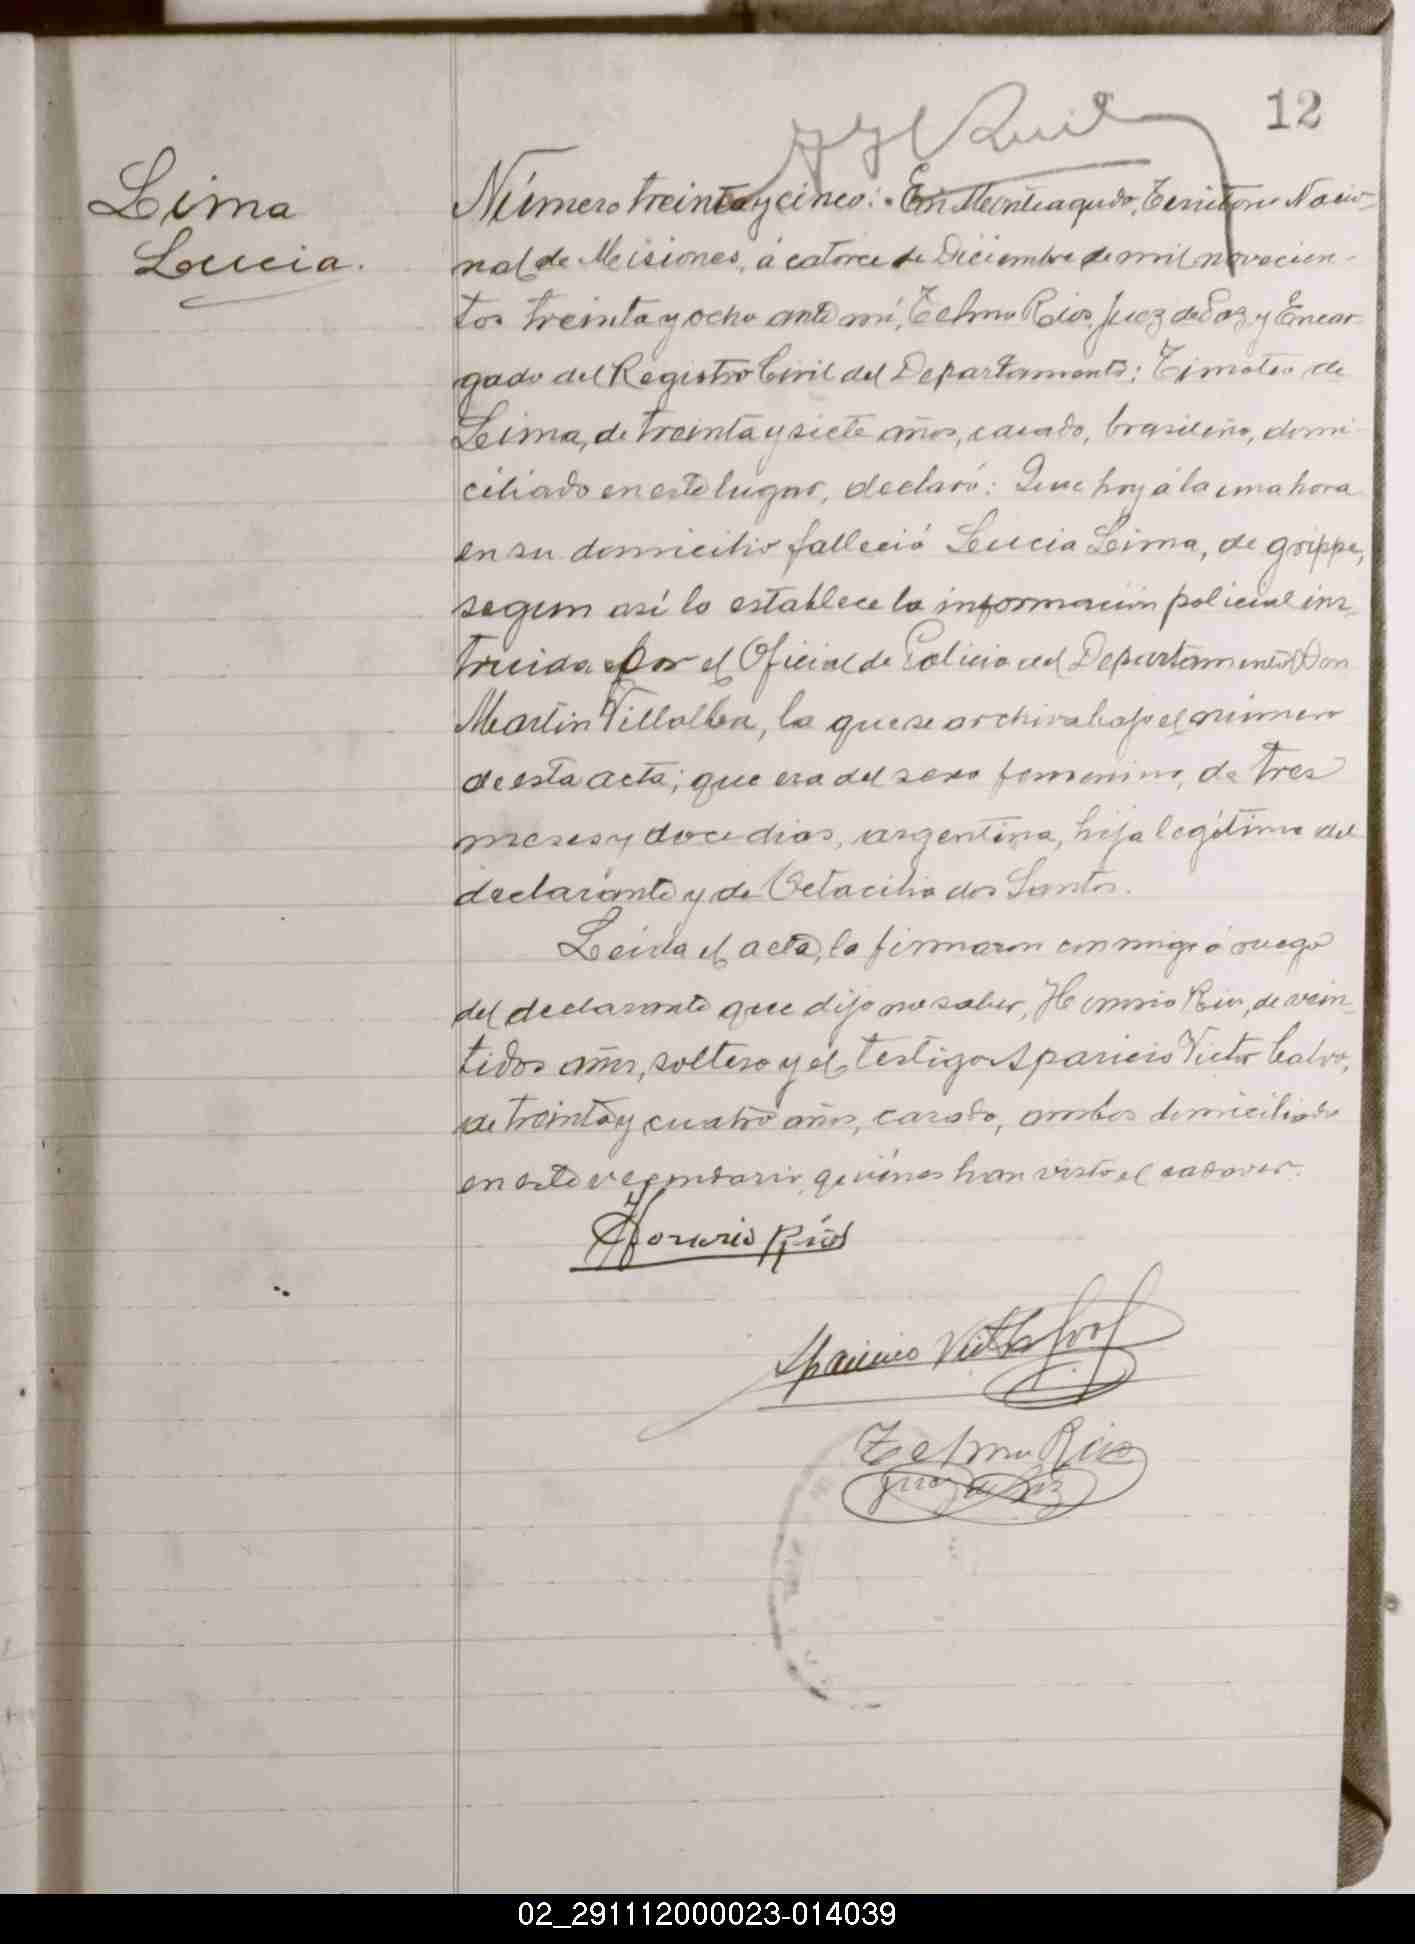 12
Lima
Lucia.
Número treinta y cinco: En Monteagudo, Territorio Nacio-
nal de Misiones, á catorce de Diciembre de mil novecien-
tos treinta y ocho ante mí, Telmo Rios, Juez de Paz y Encar-
gado del Registro Civil del Departamento: Timoteo de
Lima, de treinta y siete años, casado, brasileño, domi-
ciliado en este lugar, declaró: Que hoy á la una hora
en su domicilio falleció Lucia Lima, de grippe,
segun así lo establece la información policial ins-
truida por el Oficial de Policia del Departamento Don
Martin Villalba, la que se archiva bajo el número
de esta acta; que era del sexo femenino, de tres
meses y doce dias, argentina, hija legítima del
declarante y de Octacilia dos Santos.
Leída el acta, la firmaron conmigo á ruego
del declarante que dijo no saber, Honorio Rios, de vein-
tidos años, soltero y el testigo Aparicio Victor Calvo,
de treinta y cuatro años, casado, ambos domiciliado
en este vecindario, quiénes han visto el cadaver.
Honorio Rios
Aparicio Victor
Telmo Rios
Juez de Paz
02_291112000023-014039